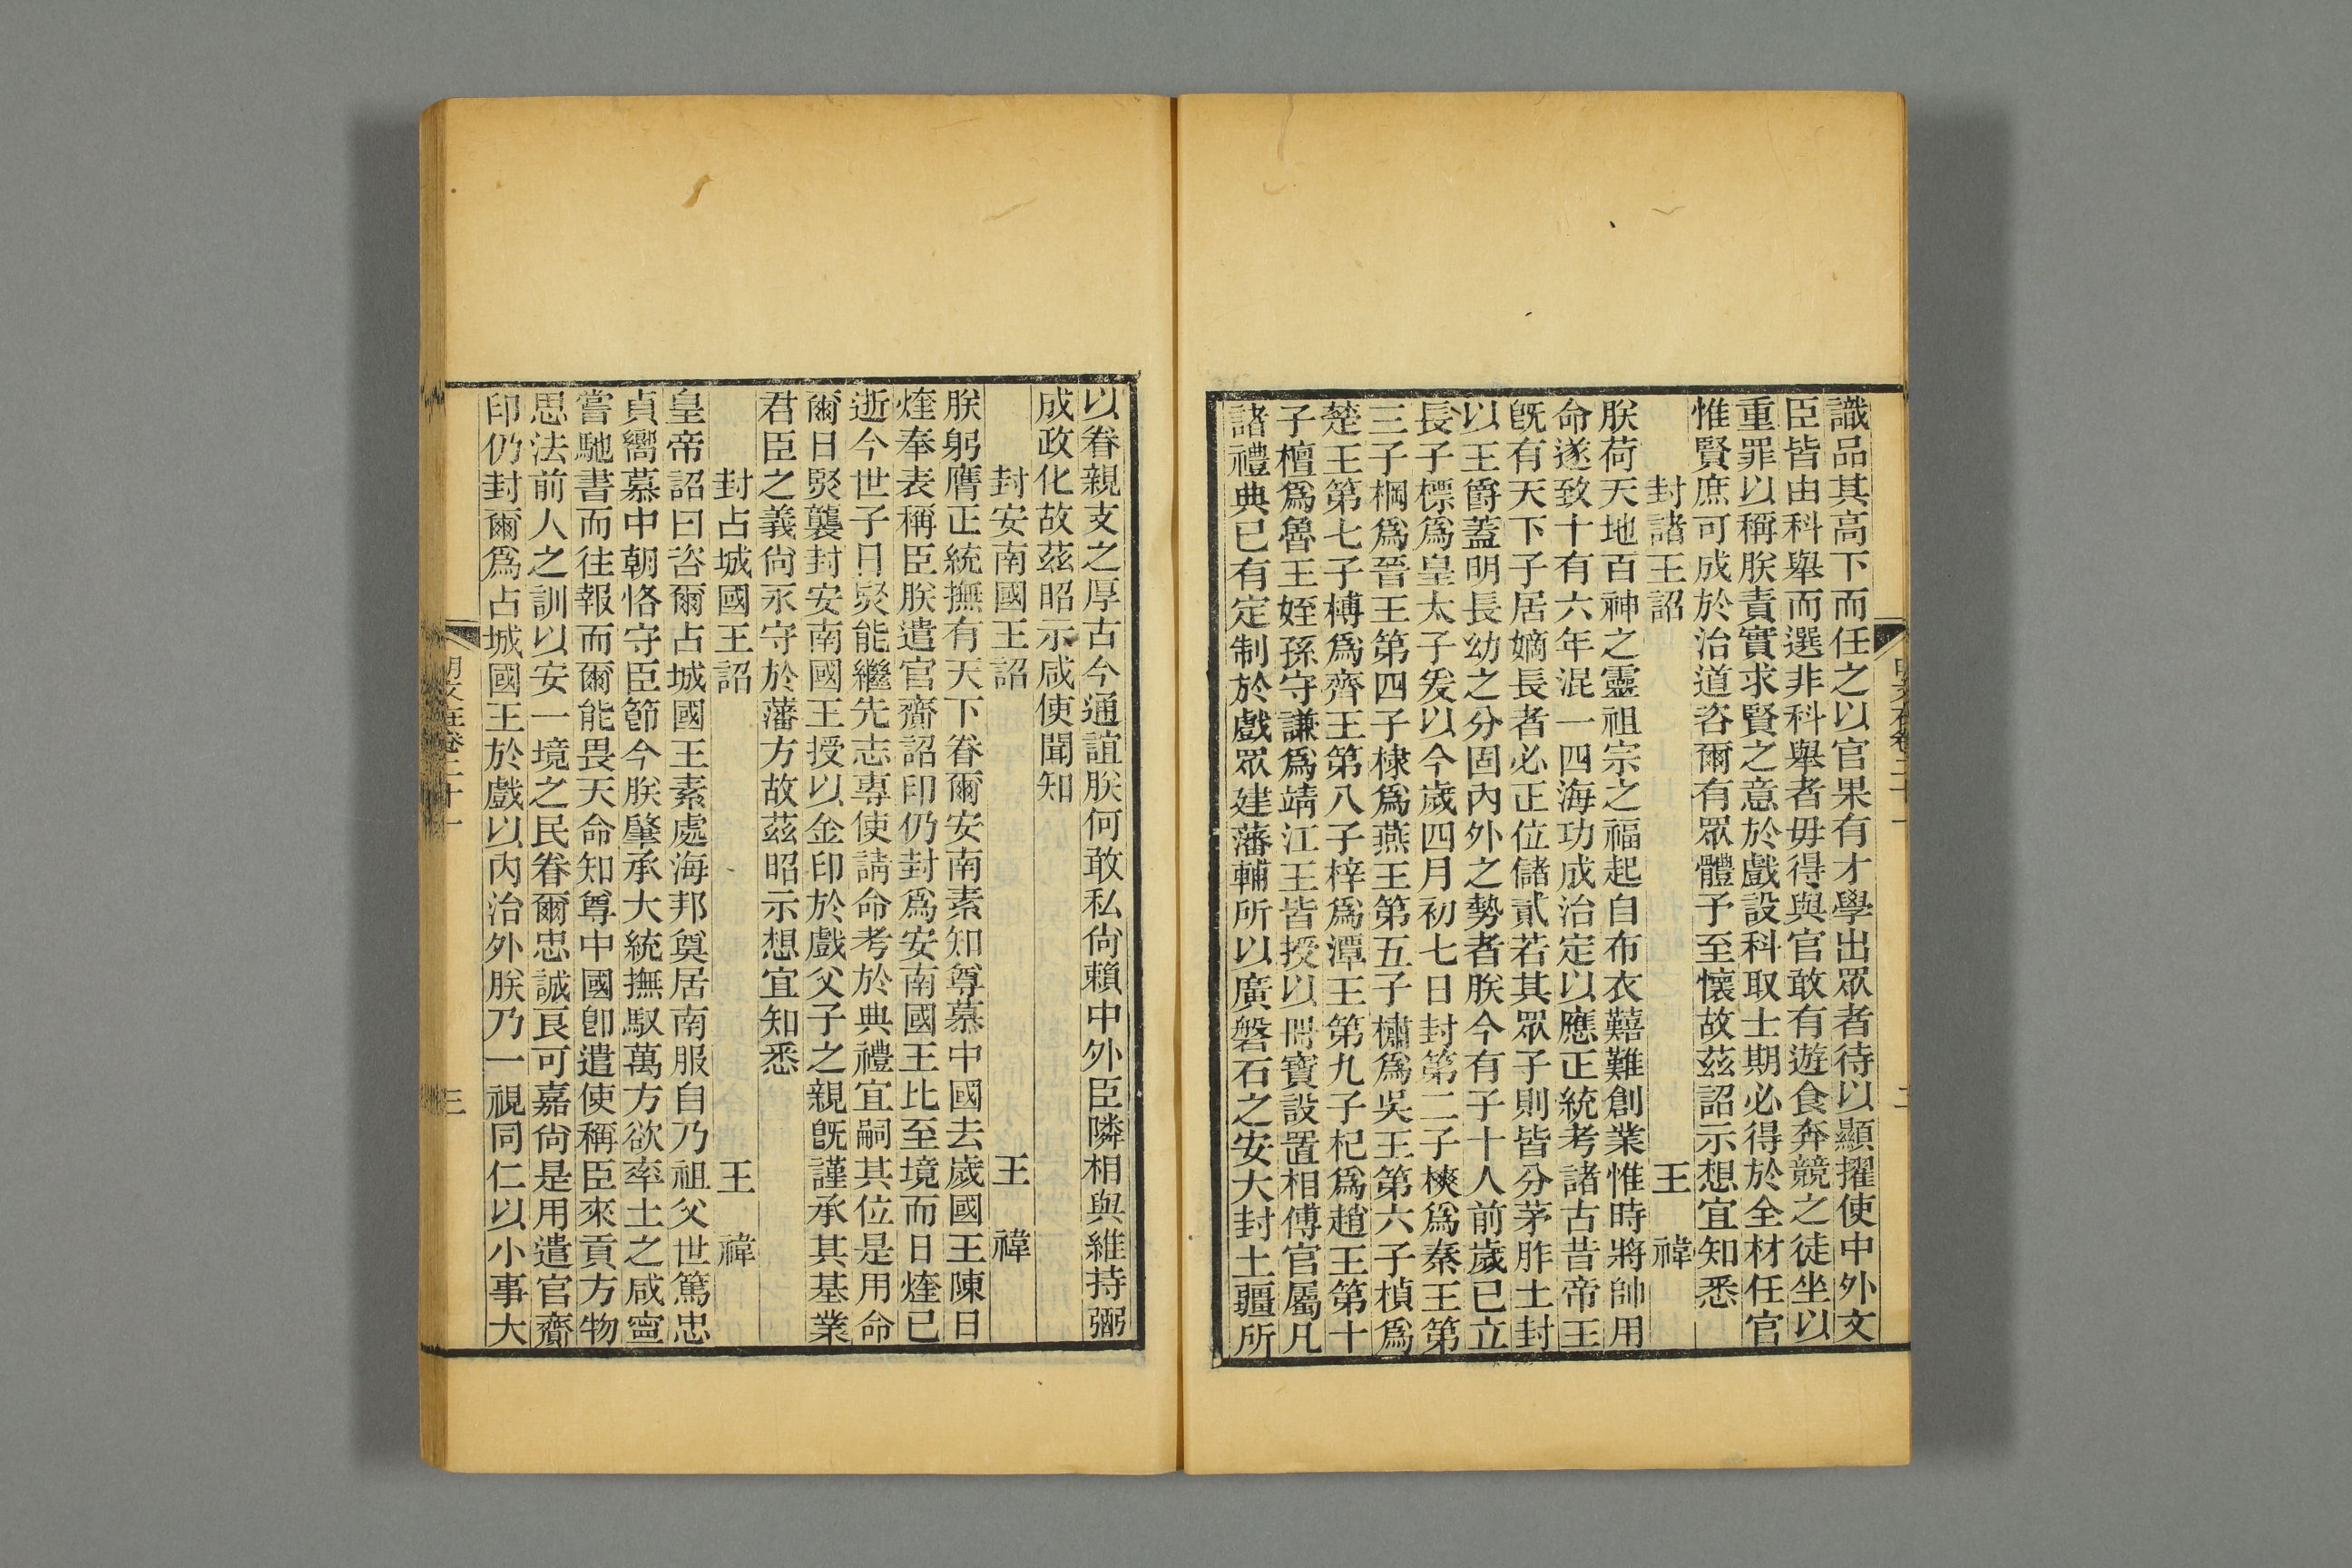 識品其高下而任之以官果有才學出眾者待以顯擢使中外文
臣皆由科舉而選非科舉者毋得與官敢有遊食奔競之徒坐以
重罪以稱朕責實求賢之意於戲設科取士期必得於全材任官
惟賢庶可成於治道咨爾有眾體予至懷故茲詔示想宜知悉
封諸王詔 王禕
朕荷天地百神之靈祖宗之福起自布衣囏難創業惟時將帥用
命遂致十有六年混一四海功成治定以應正統考諸古昔帝王
旣有天下子居嫡長者必正位儲貳若其眾子則皆分茅胙土封
以王爵蓋明長幼之分固內外之勢者朕今有子十人前歲已立
長子標爲皇太子爰以今歲四月初七日封第二子樉爲秦王第
三子棡爲晉王第四子棣爲燕王第五子橚爲吳王第六子楨爲
楚王第七子榑爲齊王第八子梓爲潭王第九子杞爲趙王第十
子檀爲魯王姪孫守謙爲靖江王皆授以冊寶設置相傅官屬凡
諸禮典已有定制於戲眾建藩輔所以廣磐石之安大封土疆所
明文在卷二十一
二
以眷親支之厚古今通誼朕何敢私尙賴中外臣隣相與維持弼
成政化故茲昭示咸使聞知
封安南國王詔 王禕
朕躬膺正統撫有天下眷爾安南素知尊慕中國去歲國王陳日
煃奉表稱臣朕遣官齎詔印仍封爲安南國王比至境而日煃已
逝今世子日熞能繼先志專使請命考於典禮宜嗣其位是用命
爾日熞襲封安南國王授以金印於戲父子之親旣謹承其基業
君臣之義尙永守於藩方故茲昭示想宜知悉
封占城國王詔 王禕
皇帝詔曰咨爾占城國王素處海邦奠居南服自乃祖父世篤忠
貞嚮慕中朝恪守臣節今朕肇承大統撫馭萬方欲率土之咸寍
嘗馳書而往報而爾能畏天命知尊中國卽遣使稱臣來貢方物
思法前人之訓以安一境之民眷爾忠誠良可嘉尙是用遣官齎
印仍封爾爲占城國王於戲以內治外朕乃一視同仁以小事大
明文在卷二十一
三